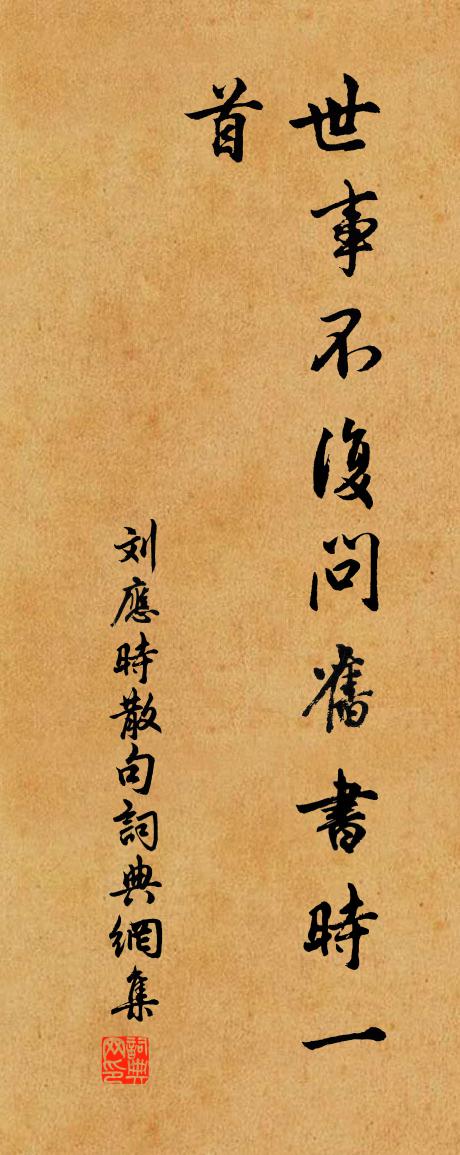 世事不復問舊書時一
首
刘應時散句詞典網集
詞典
网印